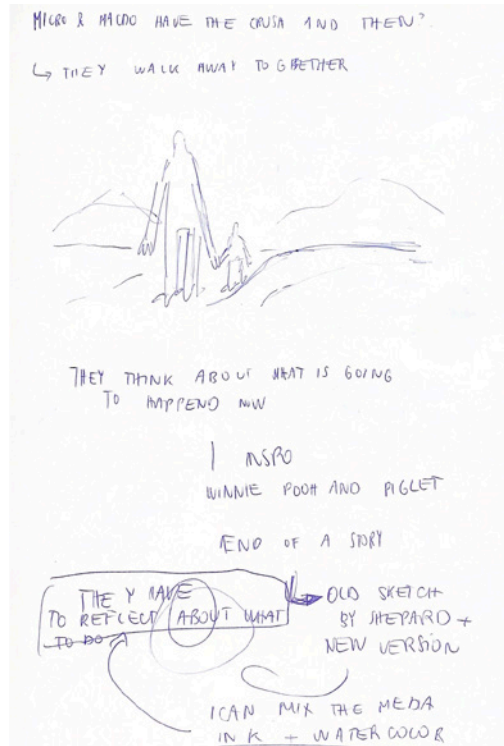 MICRO & MACRO HAVE THE CRUSA AND THEN?
↳ THEY WALK AWAY TOGHETHER
THEY THINK ABOUT WHAT IS GOING
TO HAPPEND NOW
INSPO
WINNIE POOH AND PIGLET
END OF A STORY
THEY HAVE
TO REFLECT ABOUT WHAT
TO DO
OLD SKETCH
BY SHEPARD +
NEW VERSION
I CAN MIX THE MEDIA
INK + WATERCOLOR